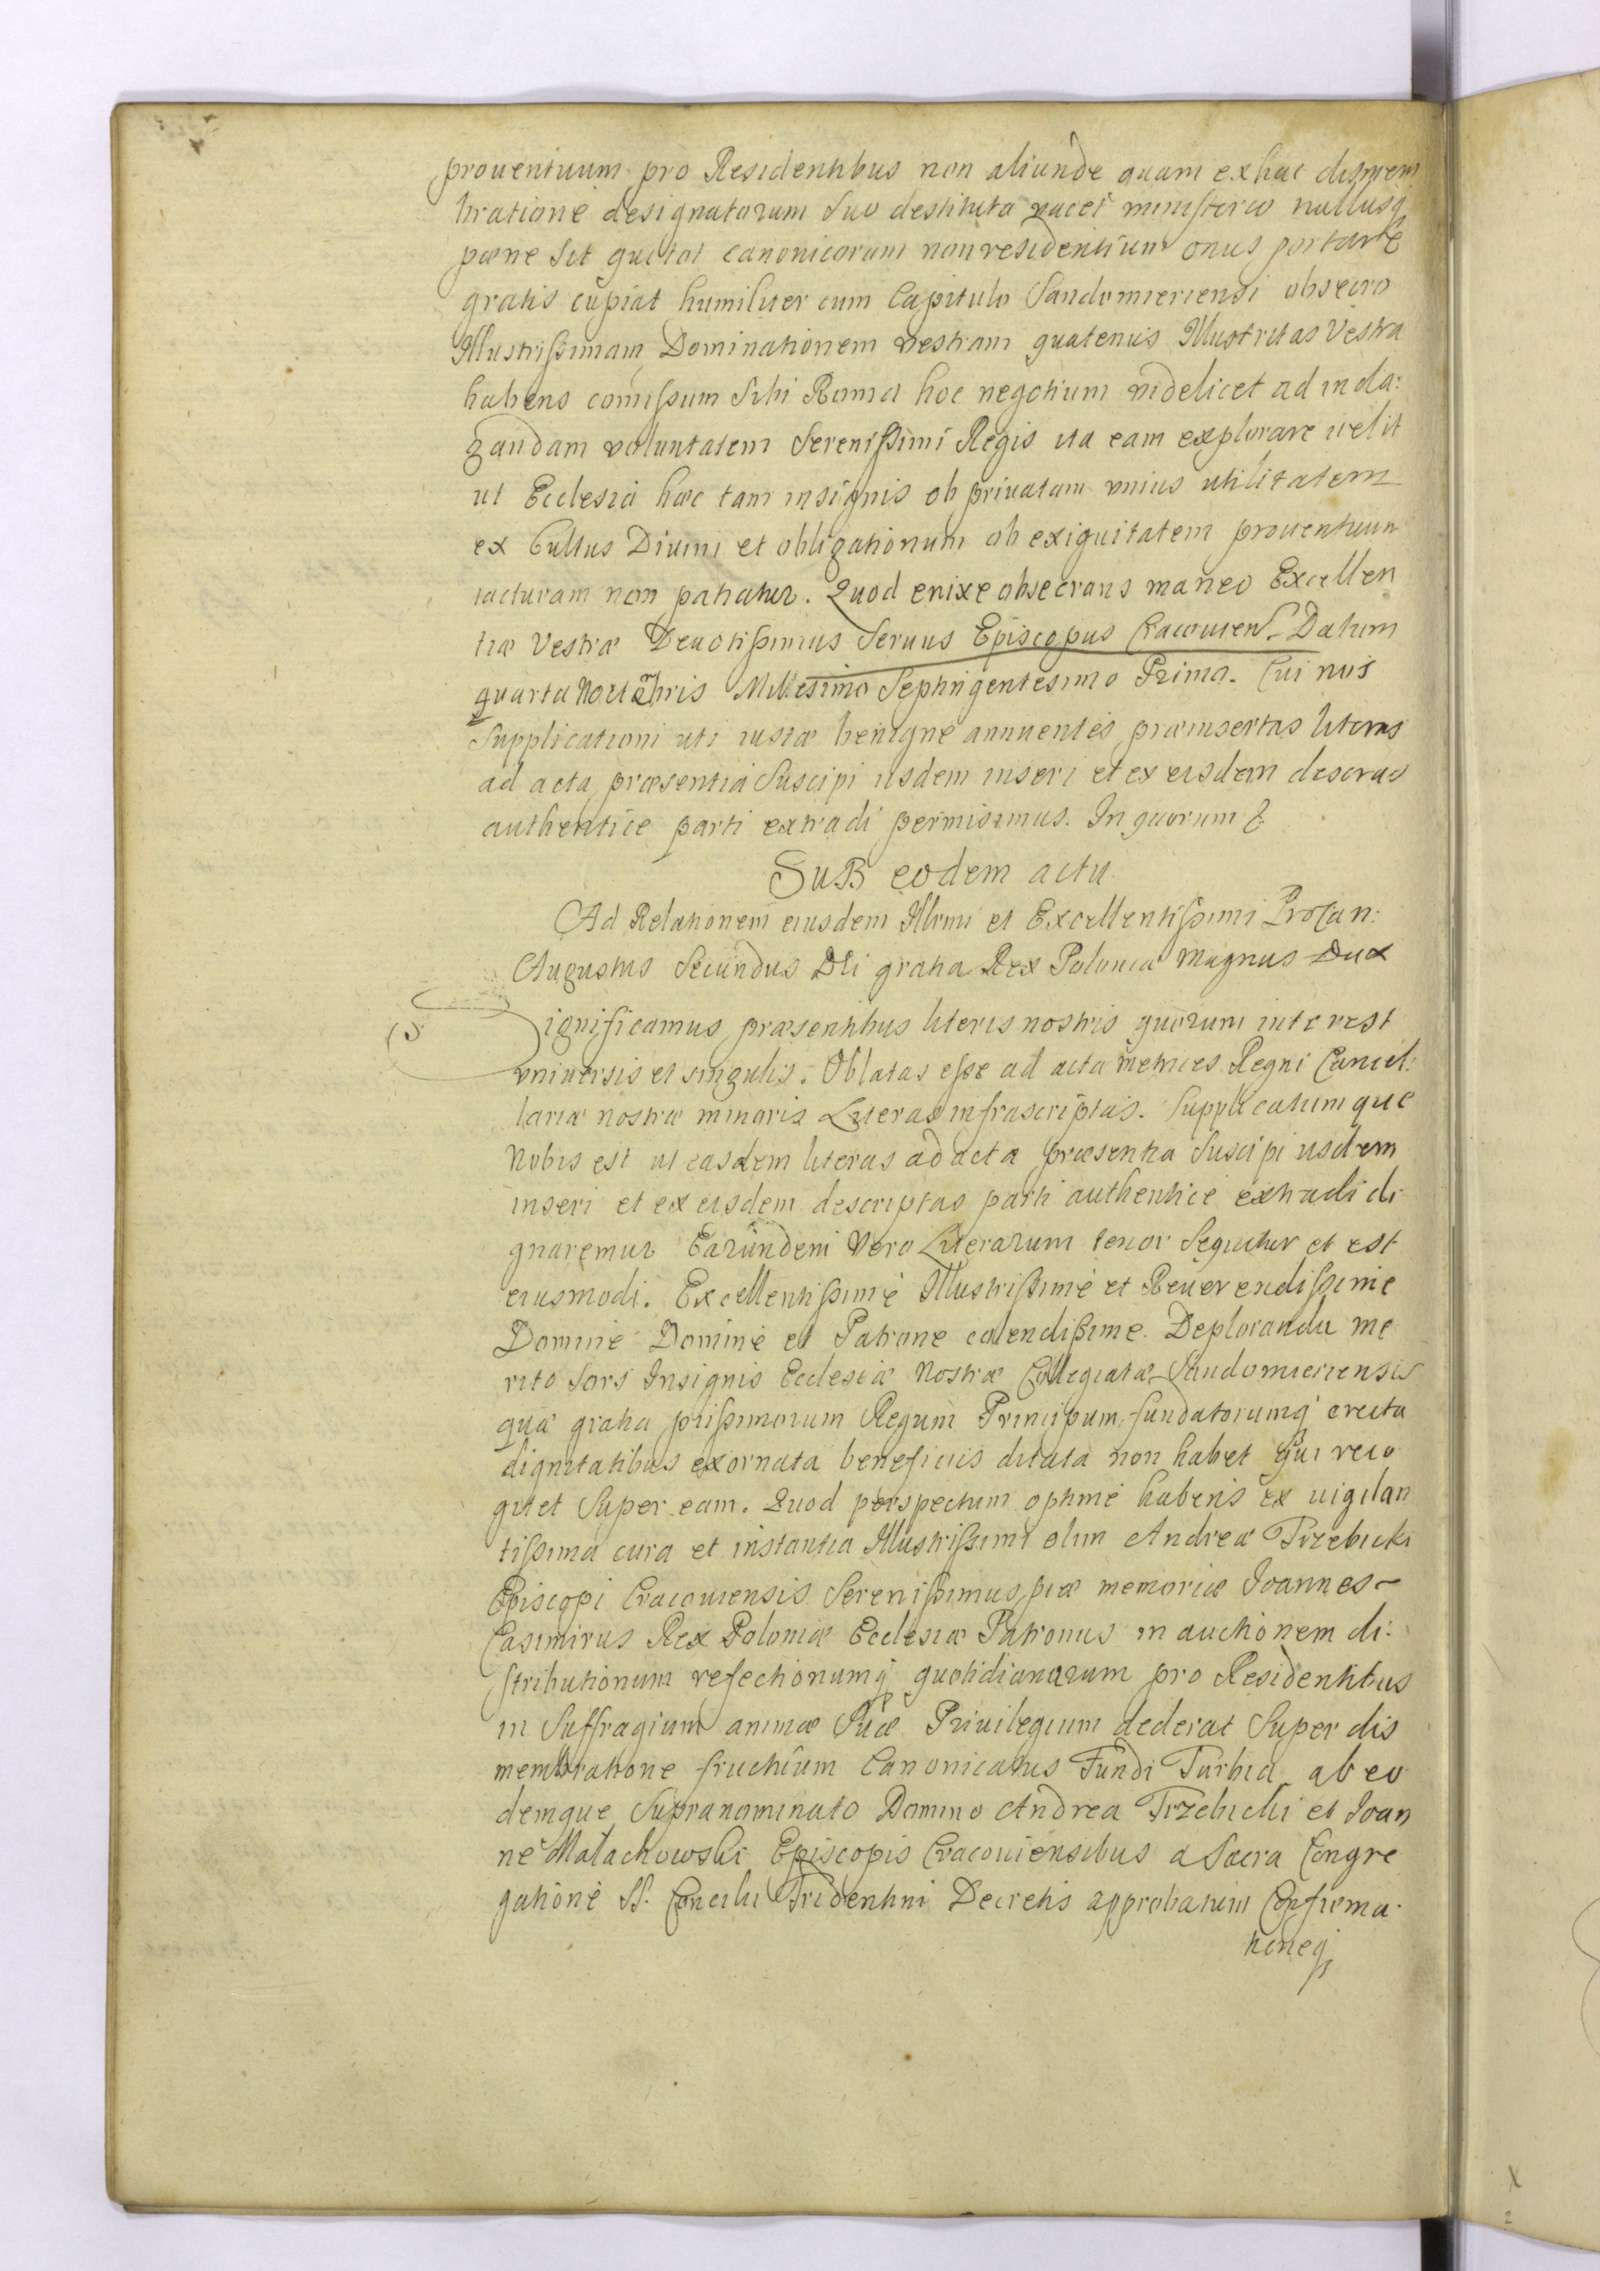 prouentuum pro Residentibus non aliunde quam ex hac dismem
bratione designatorum Suo destituta vacet ministerio nullusq
pæne sit qui tot canonicorum non residentium onus portare
gratis cupiat humiliter cum Capitulo Sandomiriensi obsecro
Illustrissimam Dominationem vestram quatenus Illustritas Vestra
habens comissum Sibi Roma hoc negotium videlicet ad inda:
gandam voluntatem Serenissimi Regis ita eam explorare uelit
ut Ecclesia hæc tam insignis ob priuatam vnius utilitatem
ex Cultus Diuini et obligationum ob exiguitatem prouentuum
iacturam non patiatur. Quod enixe obsecrans maneo Excellen
tiæ Vestræ Deuotissimus Seruus Episcopus Cracouien. Datum
quarta Nouembris Millesimo Septingentesimo Primo. Cui nos
Supplicationi uti iustæ benigne annuentes præinsertas literas
ad acta præsentia Suscipi iisdem inseri et ex eisdem descrias
authentice parti extradi permisimus. In quorum &
SuB eodem actu
Ad Relationem eiusdem Illrmi et Excellentissimi Procan:
Augustus Secundus Dei gratia Rex Poloniæ Magnus Dux
Significamus præsentibus literis nostris quorum interest
vniuersis et singulis. Oblatas esse ad acta metrices Regni Cancel:
lariæ nostræ minoris Literas infrascriptas. Supplicatumque
Nobis est ut easdem literas ad acta præsentia Suscipi iisdem
inseri et ex eisdem descriptas parti authentice extradi di
gnaremur Earundem Vero Literarum tenor Sequitur et est
eiusmodi. Excellentissime Illustrissime et Reuerendissime
Domine Domine et Patrone colendissime. Deploranda me
rito Sors Insignis Ecclesiæ Nostræ Collegiatæ Sandomiriensis
quæ gratia piissimorum Regum Principum fundatorumq erecta
dignitatibus exornata beneficiis ditata non habet qui reco
gitet Super eam. Quod perspectum optime habens ex uigilan
tissima cura et instantia Illustrissimi olim Andreæ Trzebicki
Episcopi Cracouiensis Serenissimus piæ memoriæ Joannes
Casimirus Rex Poloniæ Ecclesiæ Patronus in auctionem di:
stributionum refectionumq quotidianarum pro Residentibus
in Suffragium animæ Suæ Priuilegium dederat Super dis
membratione fructuum Canonicatus Fundi Turbia ab eo
demque Supranominato Domino Andrea Trzebicki et Joan
ne Małachowski Episcopis Cracouiensibus a Sacra Congre
gatione SS. Concilii Tridentini Decretis approbatum Confirma
tioneq